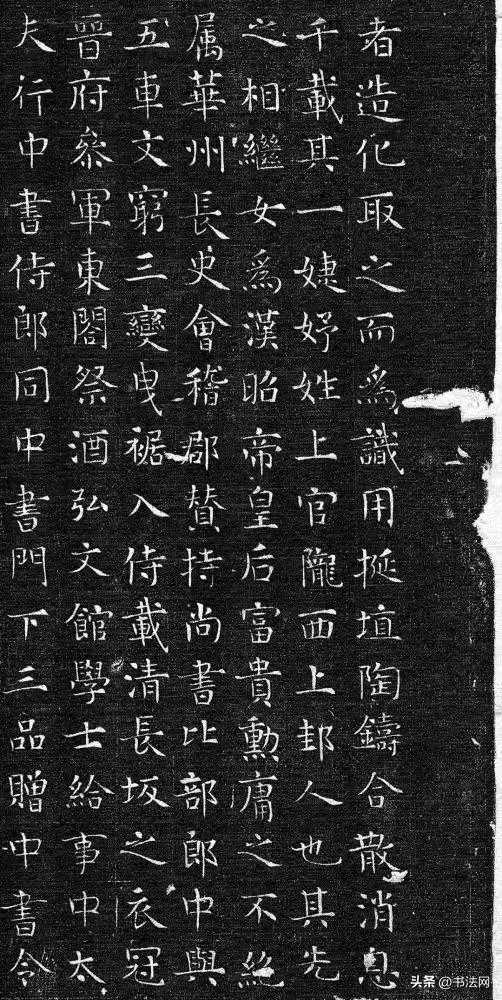 者造化取之而爲識用挻埴陶鑄合散消息
千載其一婕妤姓上官隴西上邽人也其先
之相繼女爲漢昭帝皇后富貴勳庸之不絕
属華州長史會稽郡賛持尚書比部郎中與
五車文窮三變曳裾入侍載清長坂之衣冠
晉府叅軍東閤祭酒弘文館學士給事中太
夫行中書侍郎同中書門下三品贈中書令
头条 @书法网